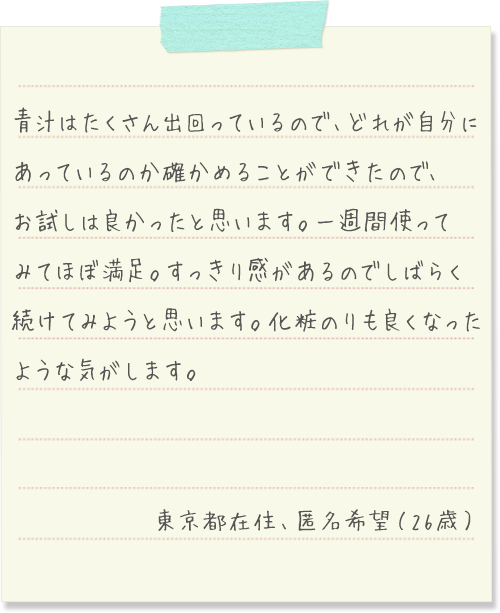 青汁はたくさん出回っているので、どれが自分に
あっているのか確かめることができたので、
お試しは良かったと思います。一週間使って
みてほぼ満足。すっきり感があるのでしばらく
続けてみようと思います。化粧のりも良くなった
ような気がします。
東京都在住、匿名希望(26歳)